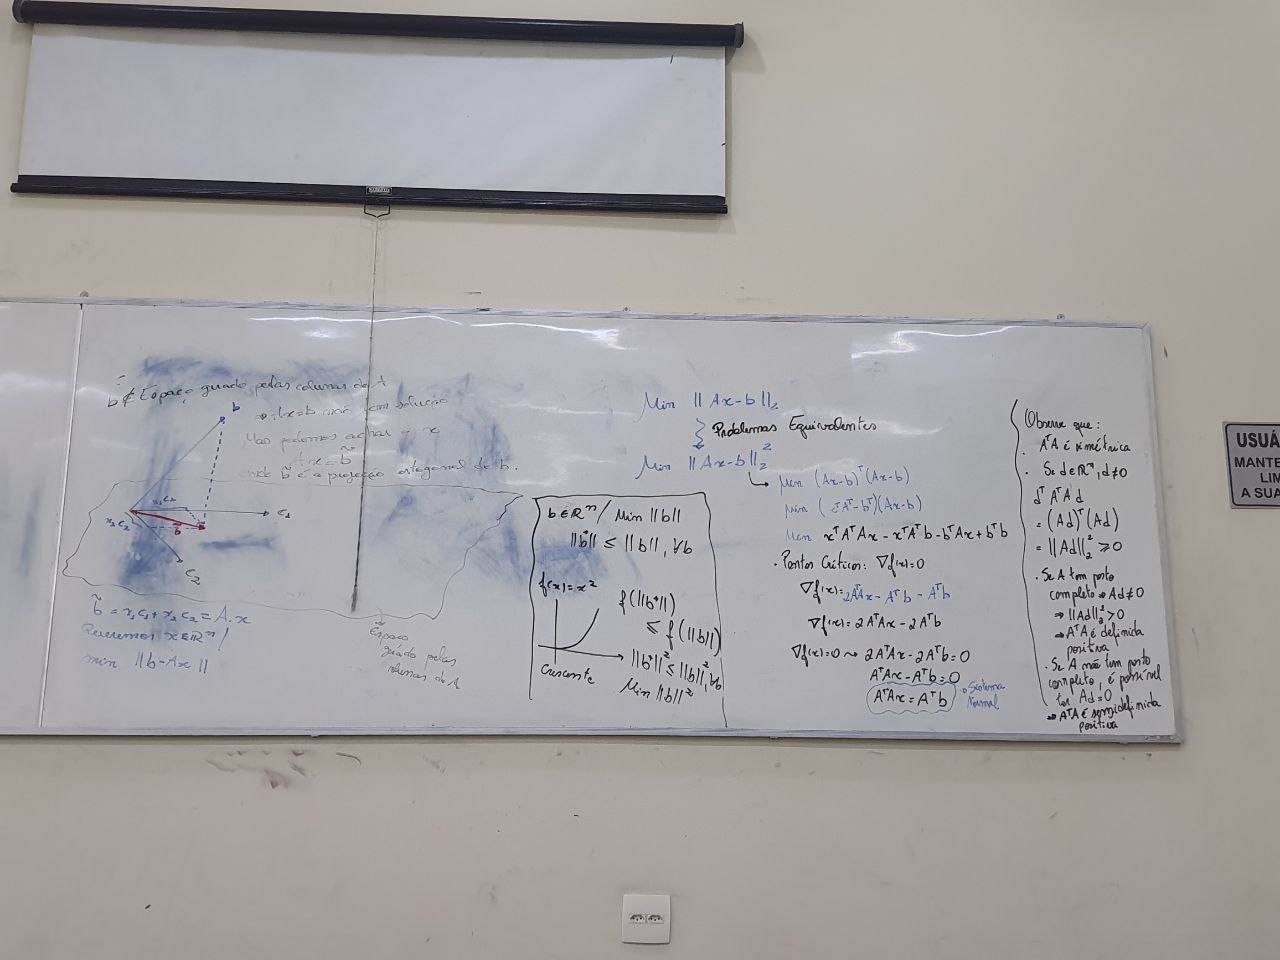 b ∉ Espaço gerado pelas colunas de A
⇒ Ax=b não tem solução
Mas podemos achar x
Ax = b̃
onde b̃ é a projeção ortogonal de b.
b
x₂ c₂
x₁ c₁
b̃
c₁
c₂
b̃ = x₁c₁ + x₂c₂ = A.x
Queremos x∈ℝⁿ/
min ‖b-Ax‖
Espaço
gerado pelas
colunas de A
b∈ℝⁿ / Min ‖b‖
‖b*‖ ≤ ‖b‖, ∀b
f(x)=x²
Crescente
f(‖b*‖)
≤ f(‖b‖)
‖b*‖² ≤ ‖b‖², ∀b
Min ‖b‖²
Min ‖Ax-b‖₂
Problemas Equivalentes
Min ‖Ax-b‖₂²
Min (Ax-b)ᵀ(Ax-b)
Min (xᵀAᵀ-bᵀ)(Ax-b)
Min xᵀAᵀAx - xᵀAᵀb - bᵀAx + bᵀb
· Pontos Críticos: ∇f(x)=0
∇f(x)=2AᵀAx - Aᵀb - Aᵀb
∇f(x)=2AᵀAx - 2Aᵀb
∇f(x)=0 ⇝ 2AᵀAx - 2Aᵀb=0
AᵀAx - Aᵀb=0
AᵀAx = Aᵀb
Sistema
Normal
Observe que:
· AᵀA é simétrica
· Se d∈ℝⁿ, d≠0
dᵀAᵀAd
= (Ad)ᵀ(Ad)
= ‖Ad‖₂² ≥ 0
· Se A tem posto
completo ⇒ Ad≠0
⇒ ‖Ad‖₂² > 0
⇒ AᵀA é definida
positiva
· Se A não tem posto
completo, é possível
ter Ad=0
⇒ AᵀA é semidefinida
positiva
USUÁ
MANTE
LIM
A SUA